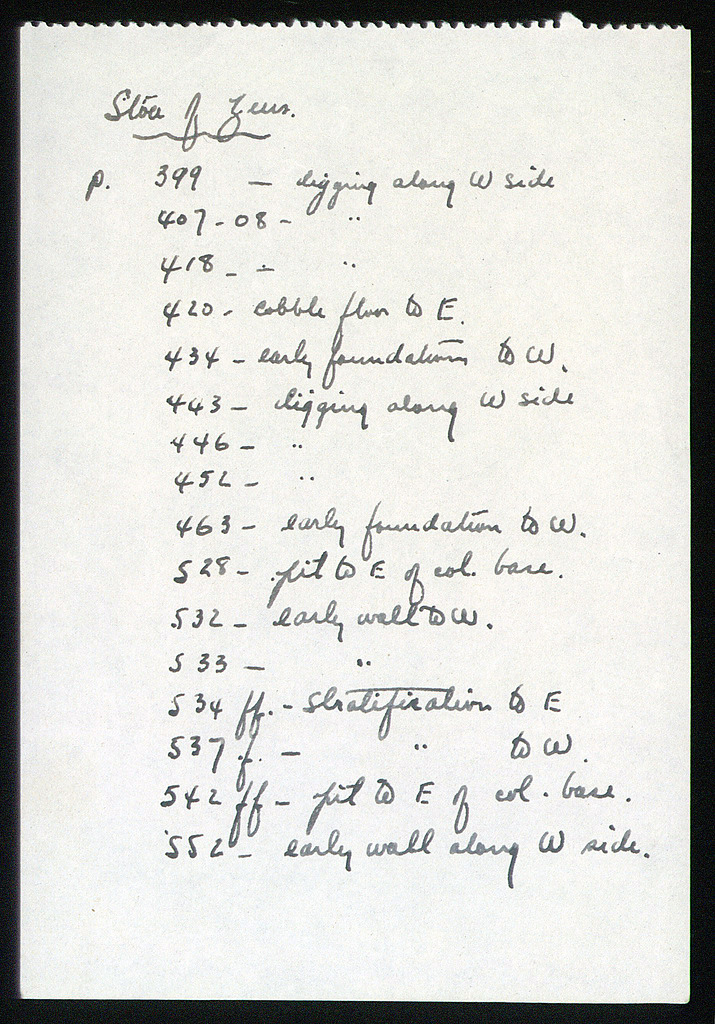 Stoa of Zeus.
p. 399 — digging along W side
407-08 - "
418 - - "
420 - cobble floor to E.
434 - early foundations to W.
443 - digging along W side
446 - "
452 - "
463 - early foundation to W.
528 - pit to E of col. base.
532 - early wall to W.
533 - "
534 ff. - stratification to E
537 f. - " to W.
542 ff - pit to E of col. base.
552 - early wall along W side.